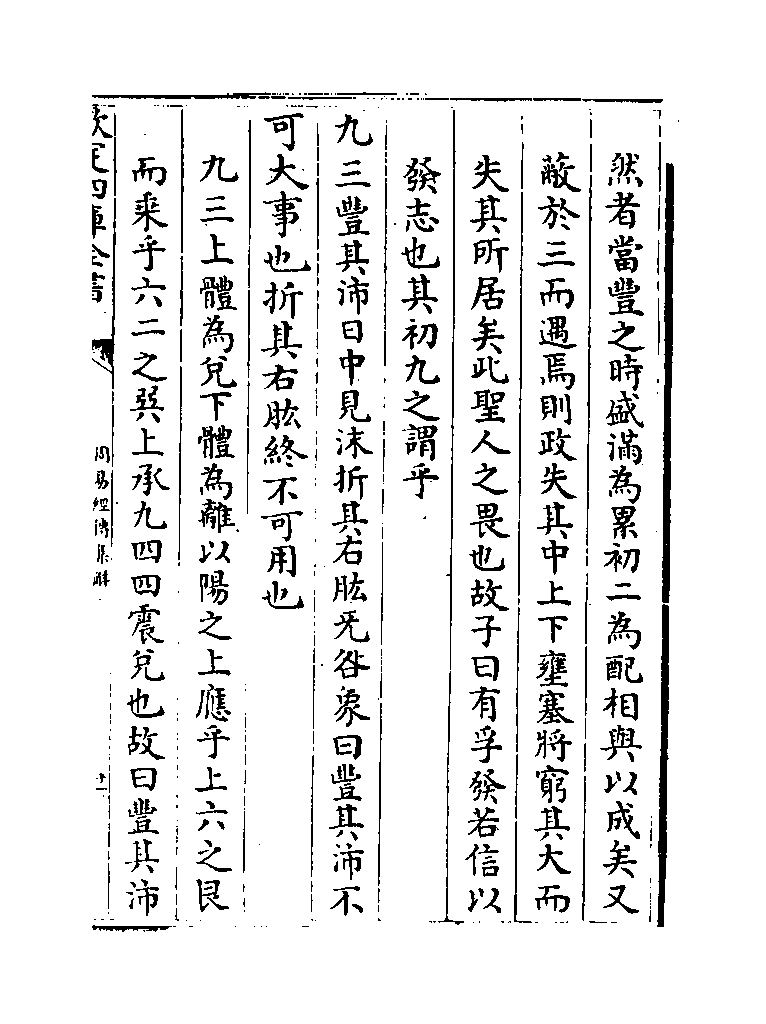 然者當豐之時盛滿為累初二為配相與以成矣又
蔽於三而遇焉則政失其中上下壅塞將窮其大而
失其所居矣此聖人之畏也故子曰有孚發若信以
發志也其初九之謂乎
九三豐其沛日中見沬折其右肱无咎象曰豐其沛不
可大事也折其右肱終不可用也
九三上體為兌下體為離以陽之上應乎上六之艮
而乘乎六二之巽上承九四四震兌也故曰豐其沛
欽定四庫全書
周易經傳集解
十一